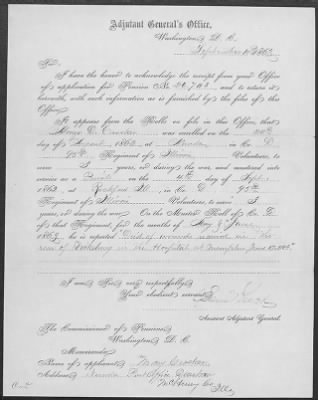 Adjutant General's Office,
Washington D. C.
186
Sir,
I have the honor to acknowledge the receipt from your Office
of application for Pension No. and to return it
herewith, with such information as is furnished by the files of this
Office.
It appears from the Rolls on file in this Office that
was enrolled on the
day of August 1862 at in Co. D
95th Regiment of Illinois Volunteers, to serve
3 years, or during the war, and mustered into
service as a Private on the 4th day of
1862, at Rockford Ill. in Co. D 95th
Regiment of Illinois Volunteers, to serve 3
years, or during the war. On the Muster Roll of Co. D
of that Regiment, for the months of May & June,
1863, he is reported "Died of wounds received in the
rear of Vicksburg in the Hospital at Memphis June
I am Sir, very respectfully,
Your obedient servant,
Assistant Adjutant General.
The Commissioner of Pensions
Washington D. C.
Memoranda
Name of applicant Mary
Address Post Office
McHenry Co. Ill.